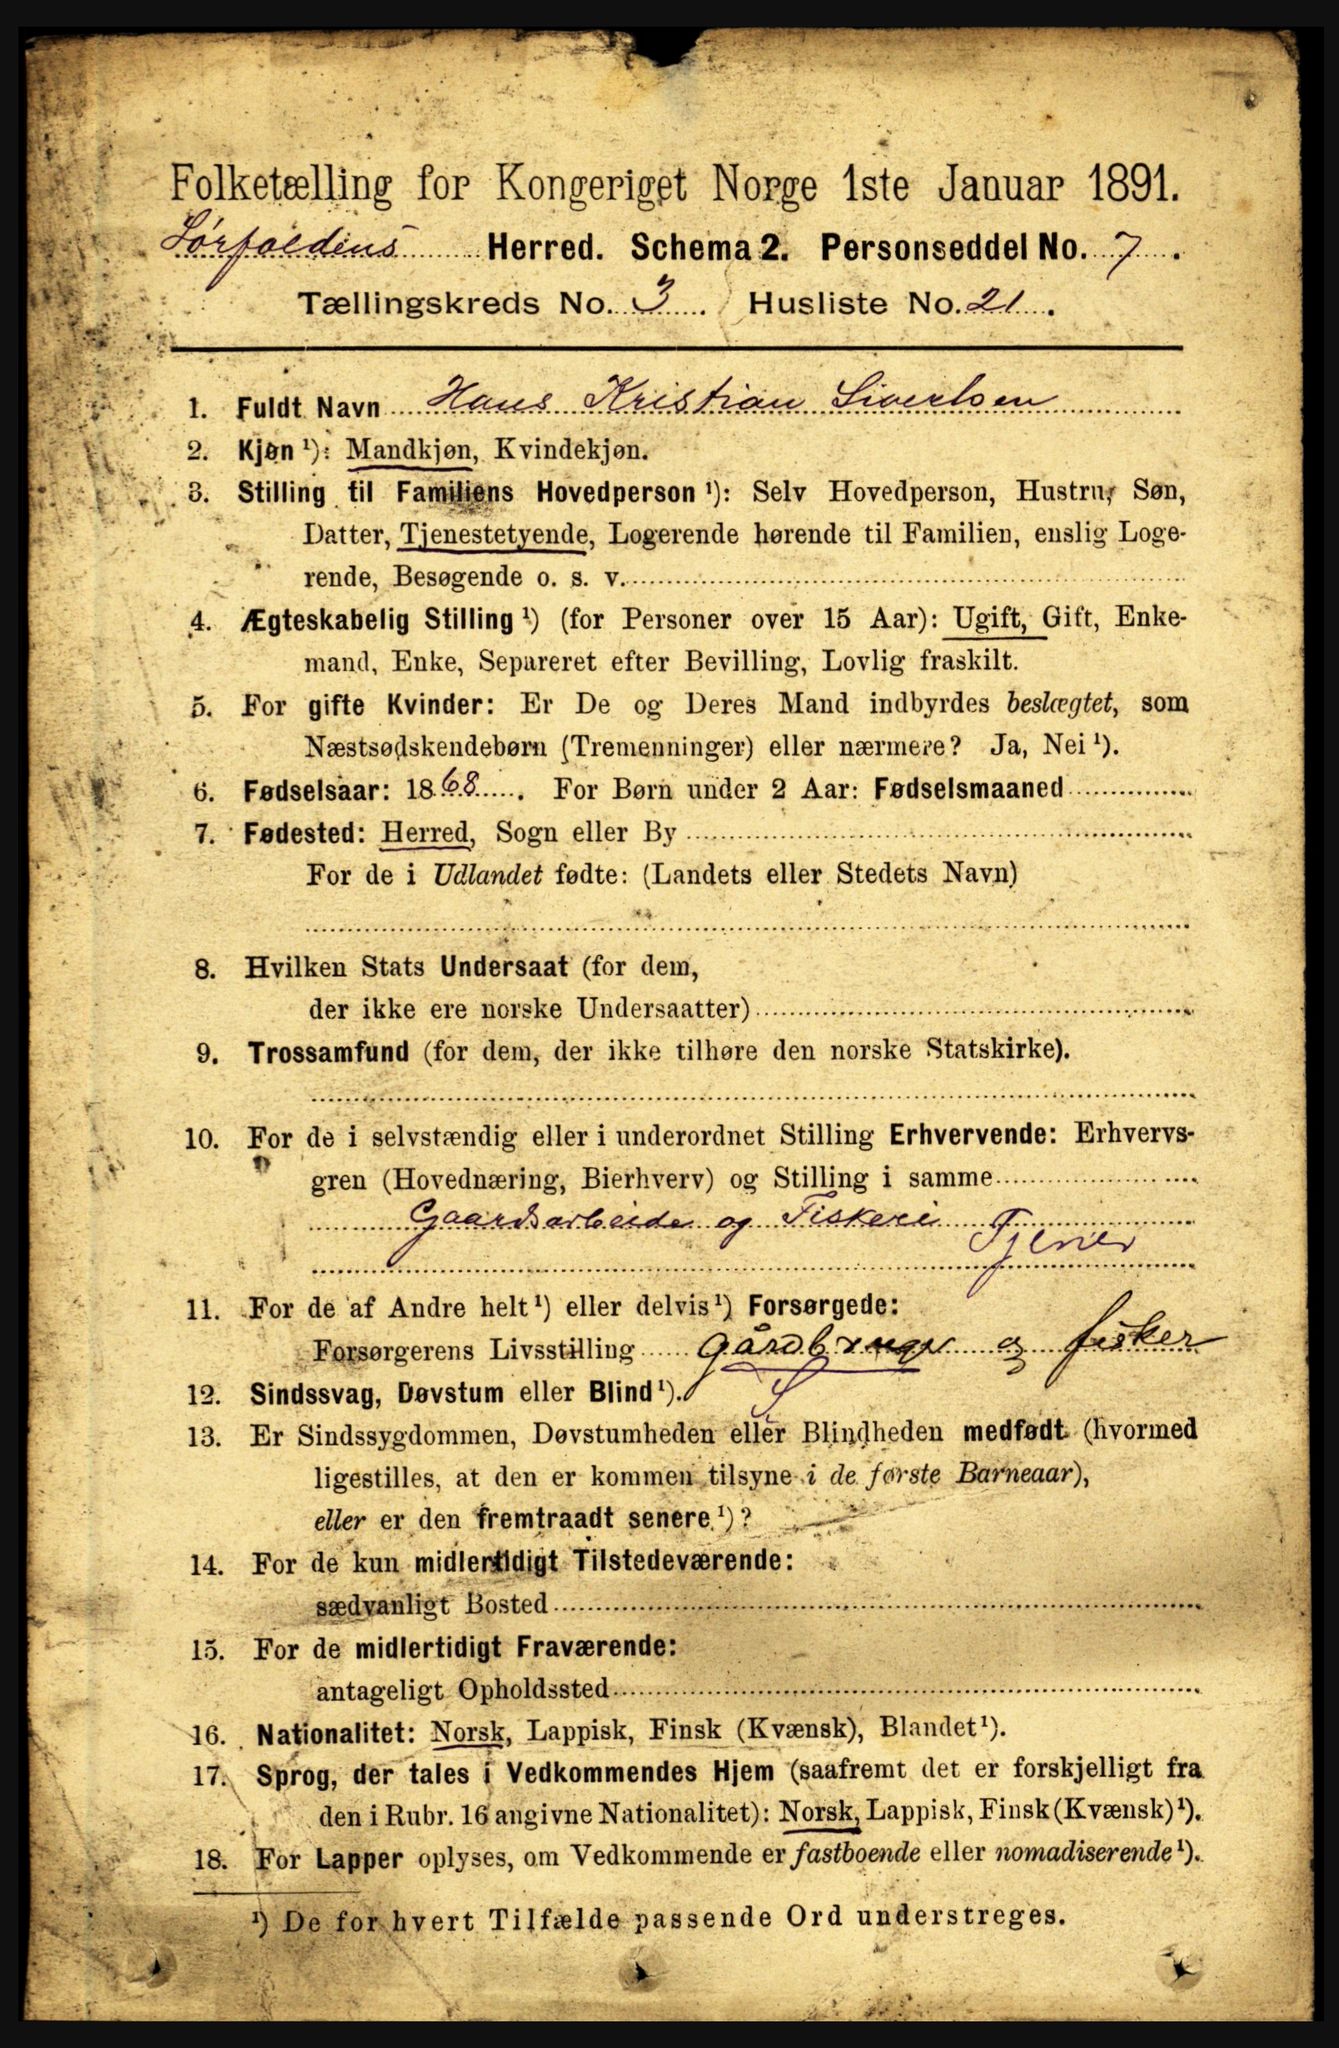 Folketælling for Kongeriget Norge 1ste Januar 1891.
Sørfoldens Herred. Schema 2. Personseddel No. 7.
Tællingskreds No. 3. Husliste No. 21.
1. Fuldt Navn Hans Kristian Sivertsen
2. Kjøn¹): Mandkjøn, Kvindekjøn.
3. Stilling til Familiens Hovedperson¹): Selv Hovedperson, Hustru, Søn,
Datter, Tjenestetyende, Logerende hørende til Familien, enslig Loge-
rende, Besøgende o. s. v.
4. Ægteskabelig Stilling¹) (for Personer over 15 Aar): Ugift, Gift, Enke-
mand, Enke, Separeret efter Bevilling, Lovlig fraskilt.
5. For gifte Kvinder: Er De og Deres Mand indbyrdes beslægtet, som
Næstsødskendebørn (Tremenninger) eller nærmere? Ja, Nei¹).
6. Fødselsaar: 1868. For Børn under 2 Aar: Fødselsmaaned
7. Fødested: Herred, Sogn eller By
For de i Udlandet fødte: (Landets eller Stedets Navn)
8. Hvilken Stats Undersaat (for dem,
der ikke ere norske Undersaatter)
9. Trossamfund (for dem, der ikke tilhøre den norske Statskirke).
10. For de i selvstændig eller i underordnet Stilling Erhvervende: Erhvervs-
gren (Hovednæring, Bierhverv) og Stilling i samme
Gaardsarbeide og Fiskeri
Tjener
11. For de af Andre helt¹) eller delvis¹) Forsørgede:
Forsørgerens Livsstilling Gårdbruger og fisker
12. Sindssvag, Døvstum eller Blind¹).
13. Er Sindssygdommen, Døvstumheden eller Blindheden medfødt (hvormed
ligestilles, at den er kommen tilsyne i de første Barneaar),
eller er den fremtraadt senere¹)?
14. For de kun midlertidigt Tilstedeværende:
sædvanligt Bosted
15. For de midlertidigt Fraværende:
antageligt Opholdssted
16. Nationalitet: Norsk, Lappisk, Finsk (Kvænsk), Blandet¹).
17. Sprog, der tales i Vedkommendes Hjem (saafremt det er forskjelligt fra
den i Rubr. 16 angivne Nationalitet): Norsk, Lappisk, Finsk (Kvænsk)¹).
18. For Lapper oplyses, om Vedkommende er fastboende eller nomadiserende¹).
¹) De for hvert Tilfælde passende Ord understreges.